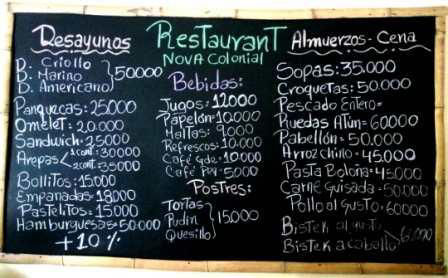 Desayunos
D. Criollo
D. Marino
D. Americano
50000
Panquecas = 25.000
Omelet = 20.000
Sandwich = 25000
Arepas
1 cont. = 30000
2 cont. = 35000
Bollitos = 15.000
Empanadas = 18000
Pastelitos = 15.000
Hamburguesas = 50.000
+10%
Restaurant
Nova Colonial
Bebidas:
Jugos = 12000
Papelón = 10.000
Maltas = 9.000
Refrescos = 10.000
Café gde = 10.000
Café Peq = 5.000
Postres:
Tortas
Pudin
Quesillo
15.000
Almuerzos - Cena
Sopas = 35.000
Croquetas = 50.000
Pescado Entero =
Ruedas Atún = 60000
Pabellón = 50.000
Arroz Chino = 45.000
Pasta Boloña = 45000
Carne Guisada = 50.000
Pollo al Gusto = 60000
Bistek al
Bistek a caballo